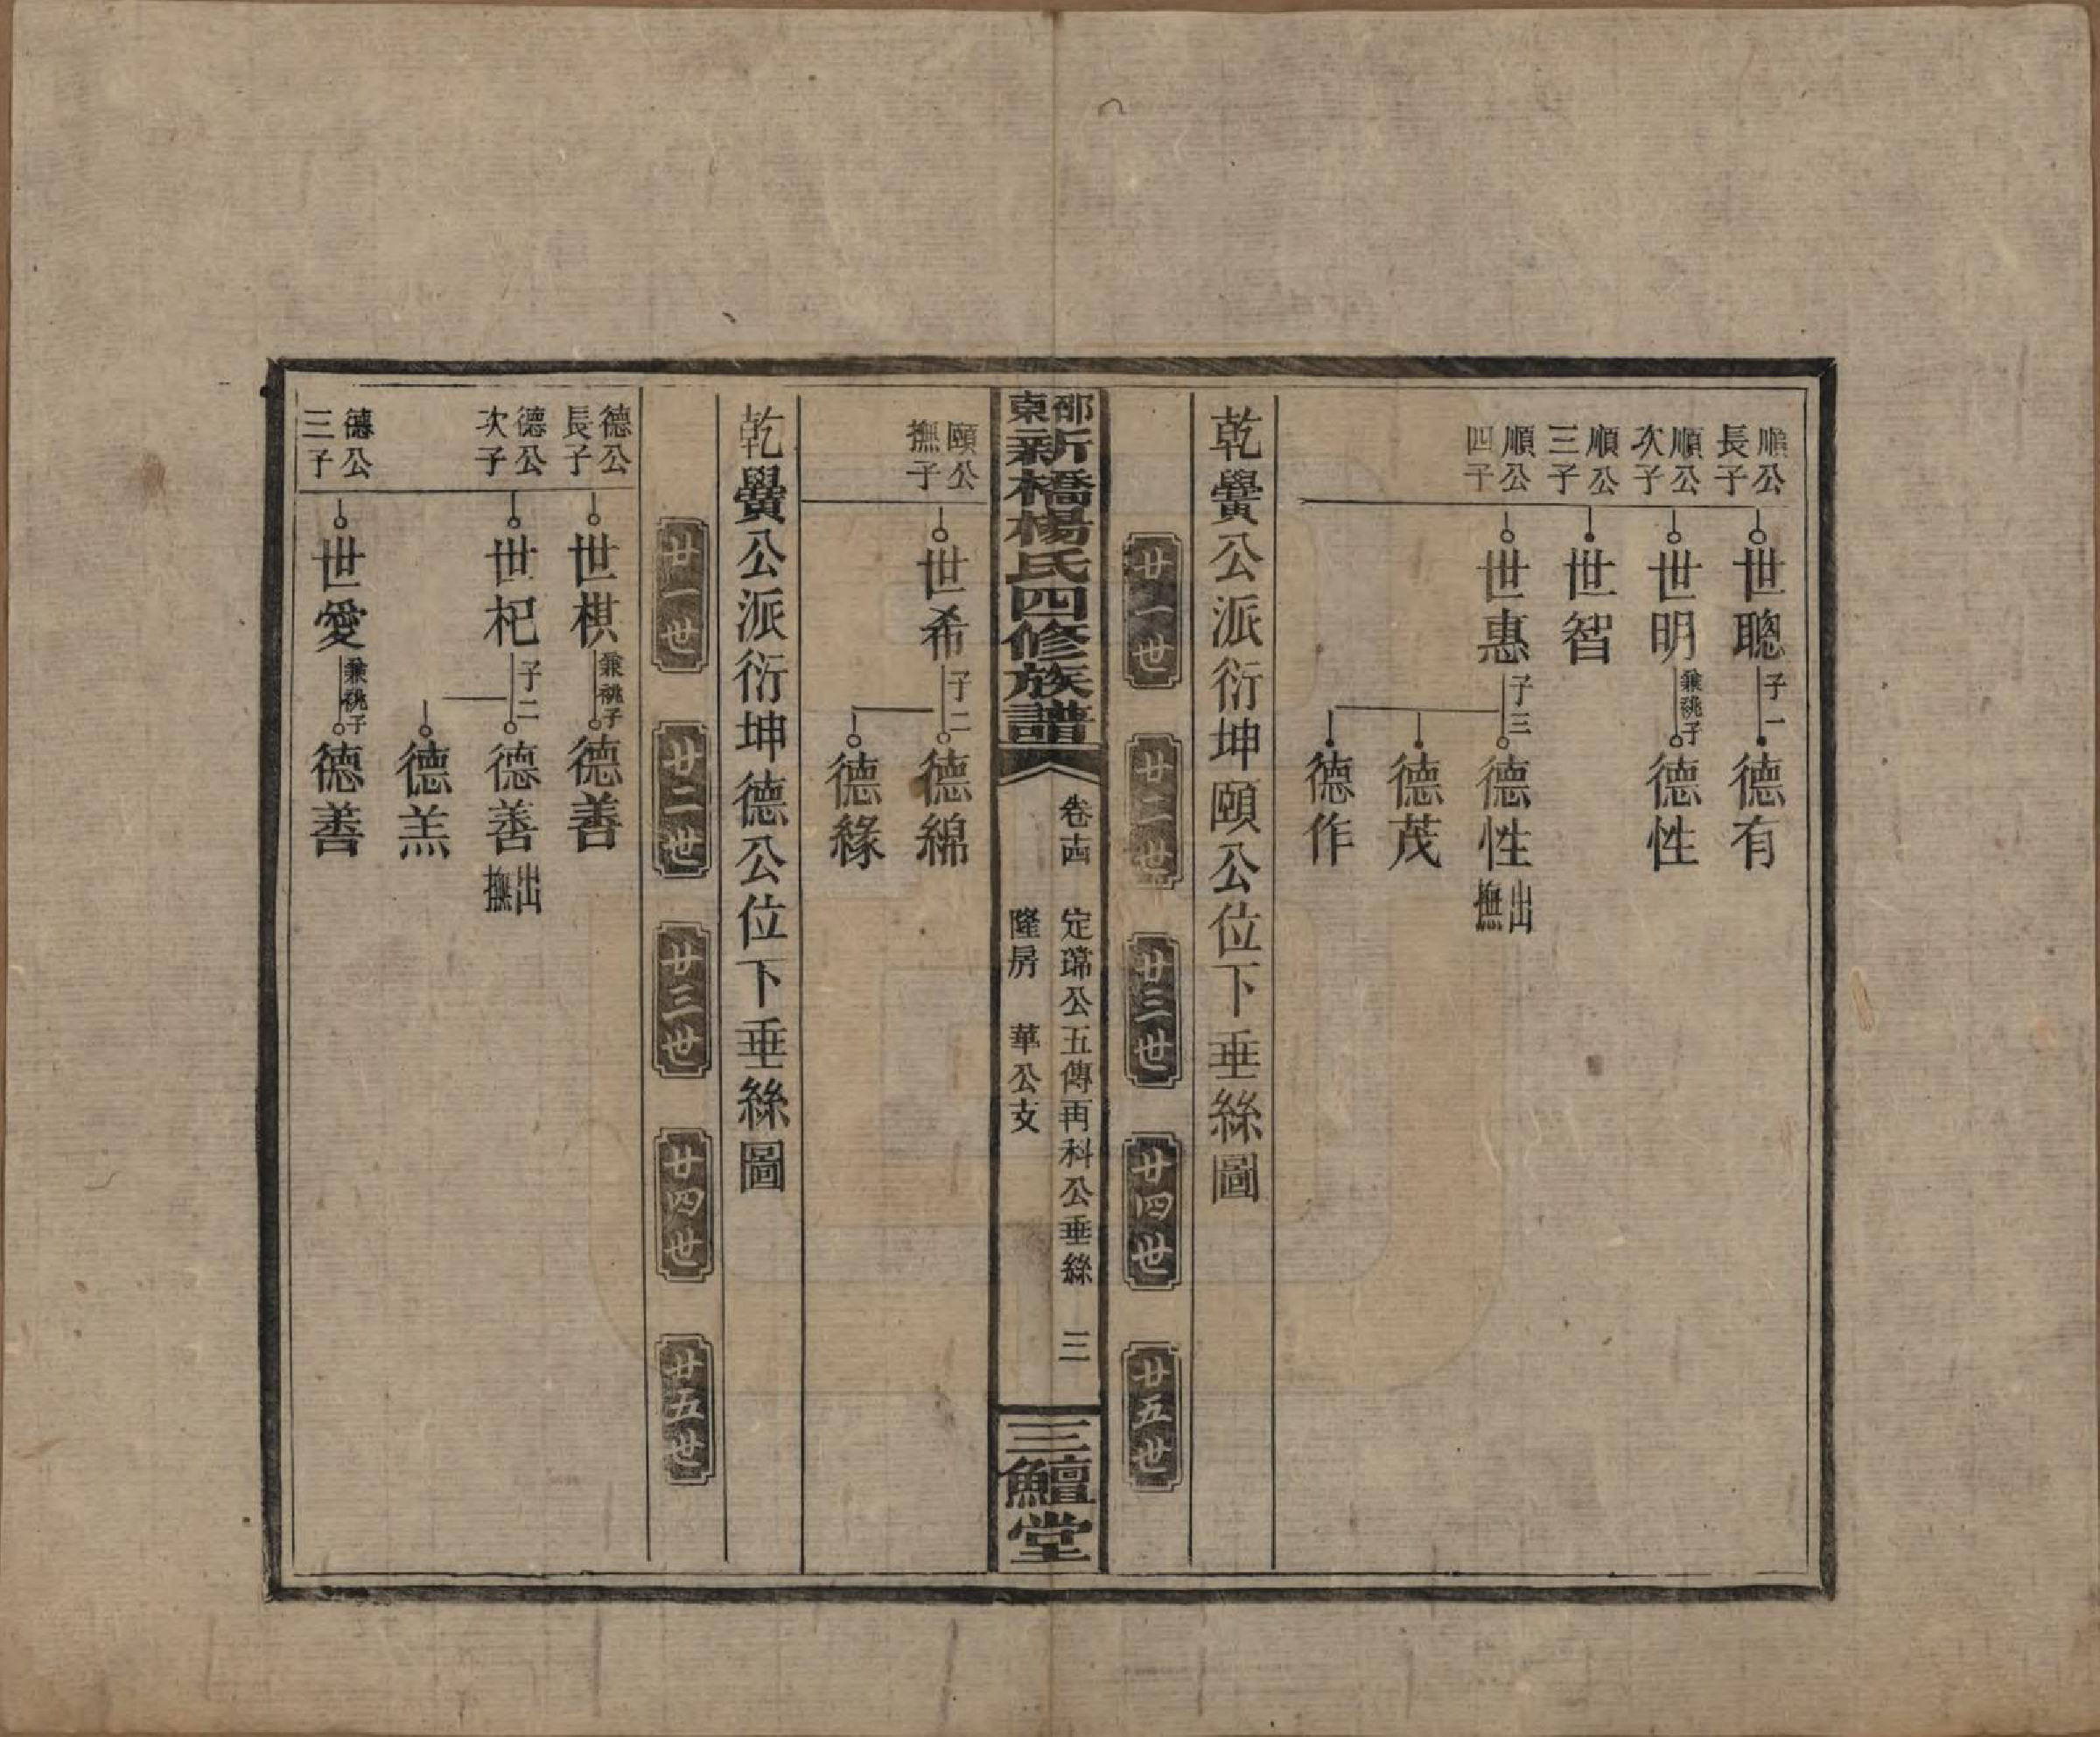 順公長子 世聰 子一 德有
順公次子 世明 兼祧子 德性
順公三子 世智
順公四子 世惠 子三 德性 出撫
德茂
德作
乾黌公派衍坤頤公位下垂絲圖
廿一世 廿二世 廿三世 廿四世 廿五世
邵東新橋楊氏四修族譜 卷十四 定璾公五傳再科公垂絲 三
隆房 華公支
三鱣堂
頤公撫子 世希 子二 德綿
德緣
乾黌公派衍坤德公位下垂絲圖
廿一世 廿二世 廿三世 廿四世 廿五世
德公長子 世棋 兼祧子 德善
德公次子 世杞 子二 德善 出撫
德羔
德公三子 世愛 兼祧子 德善